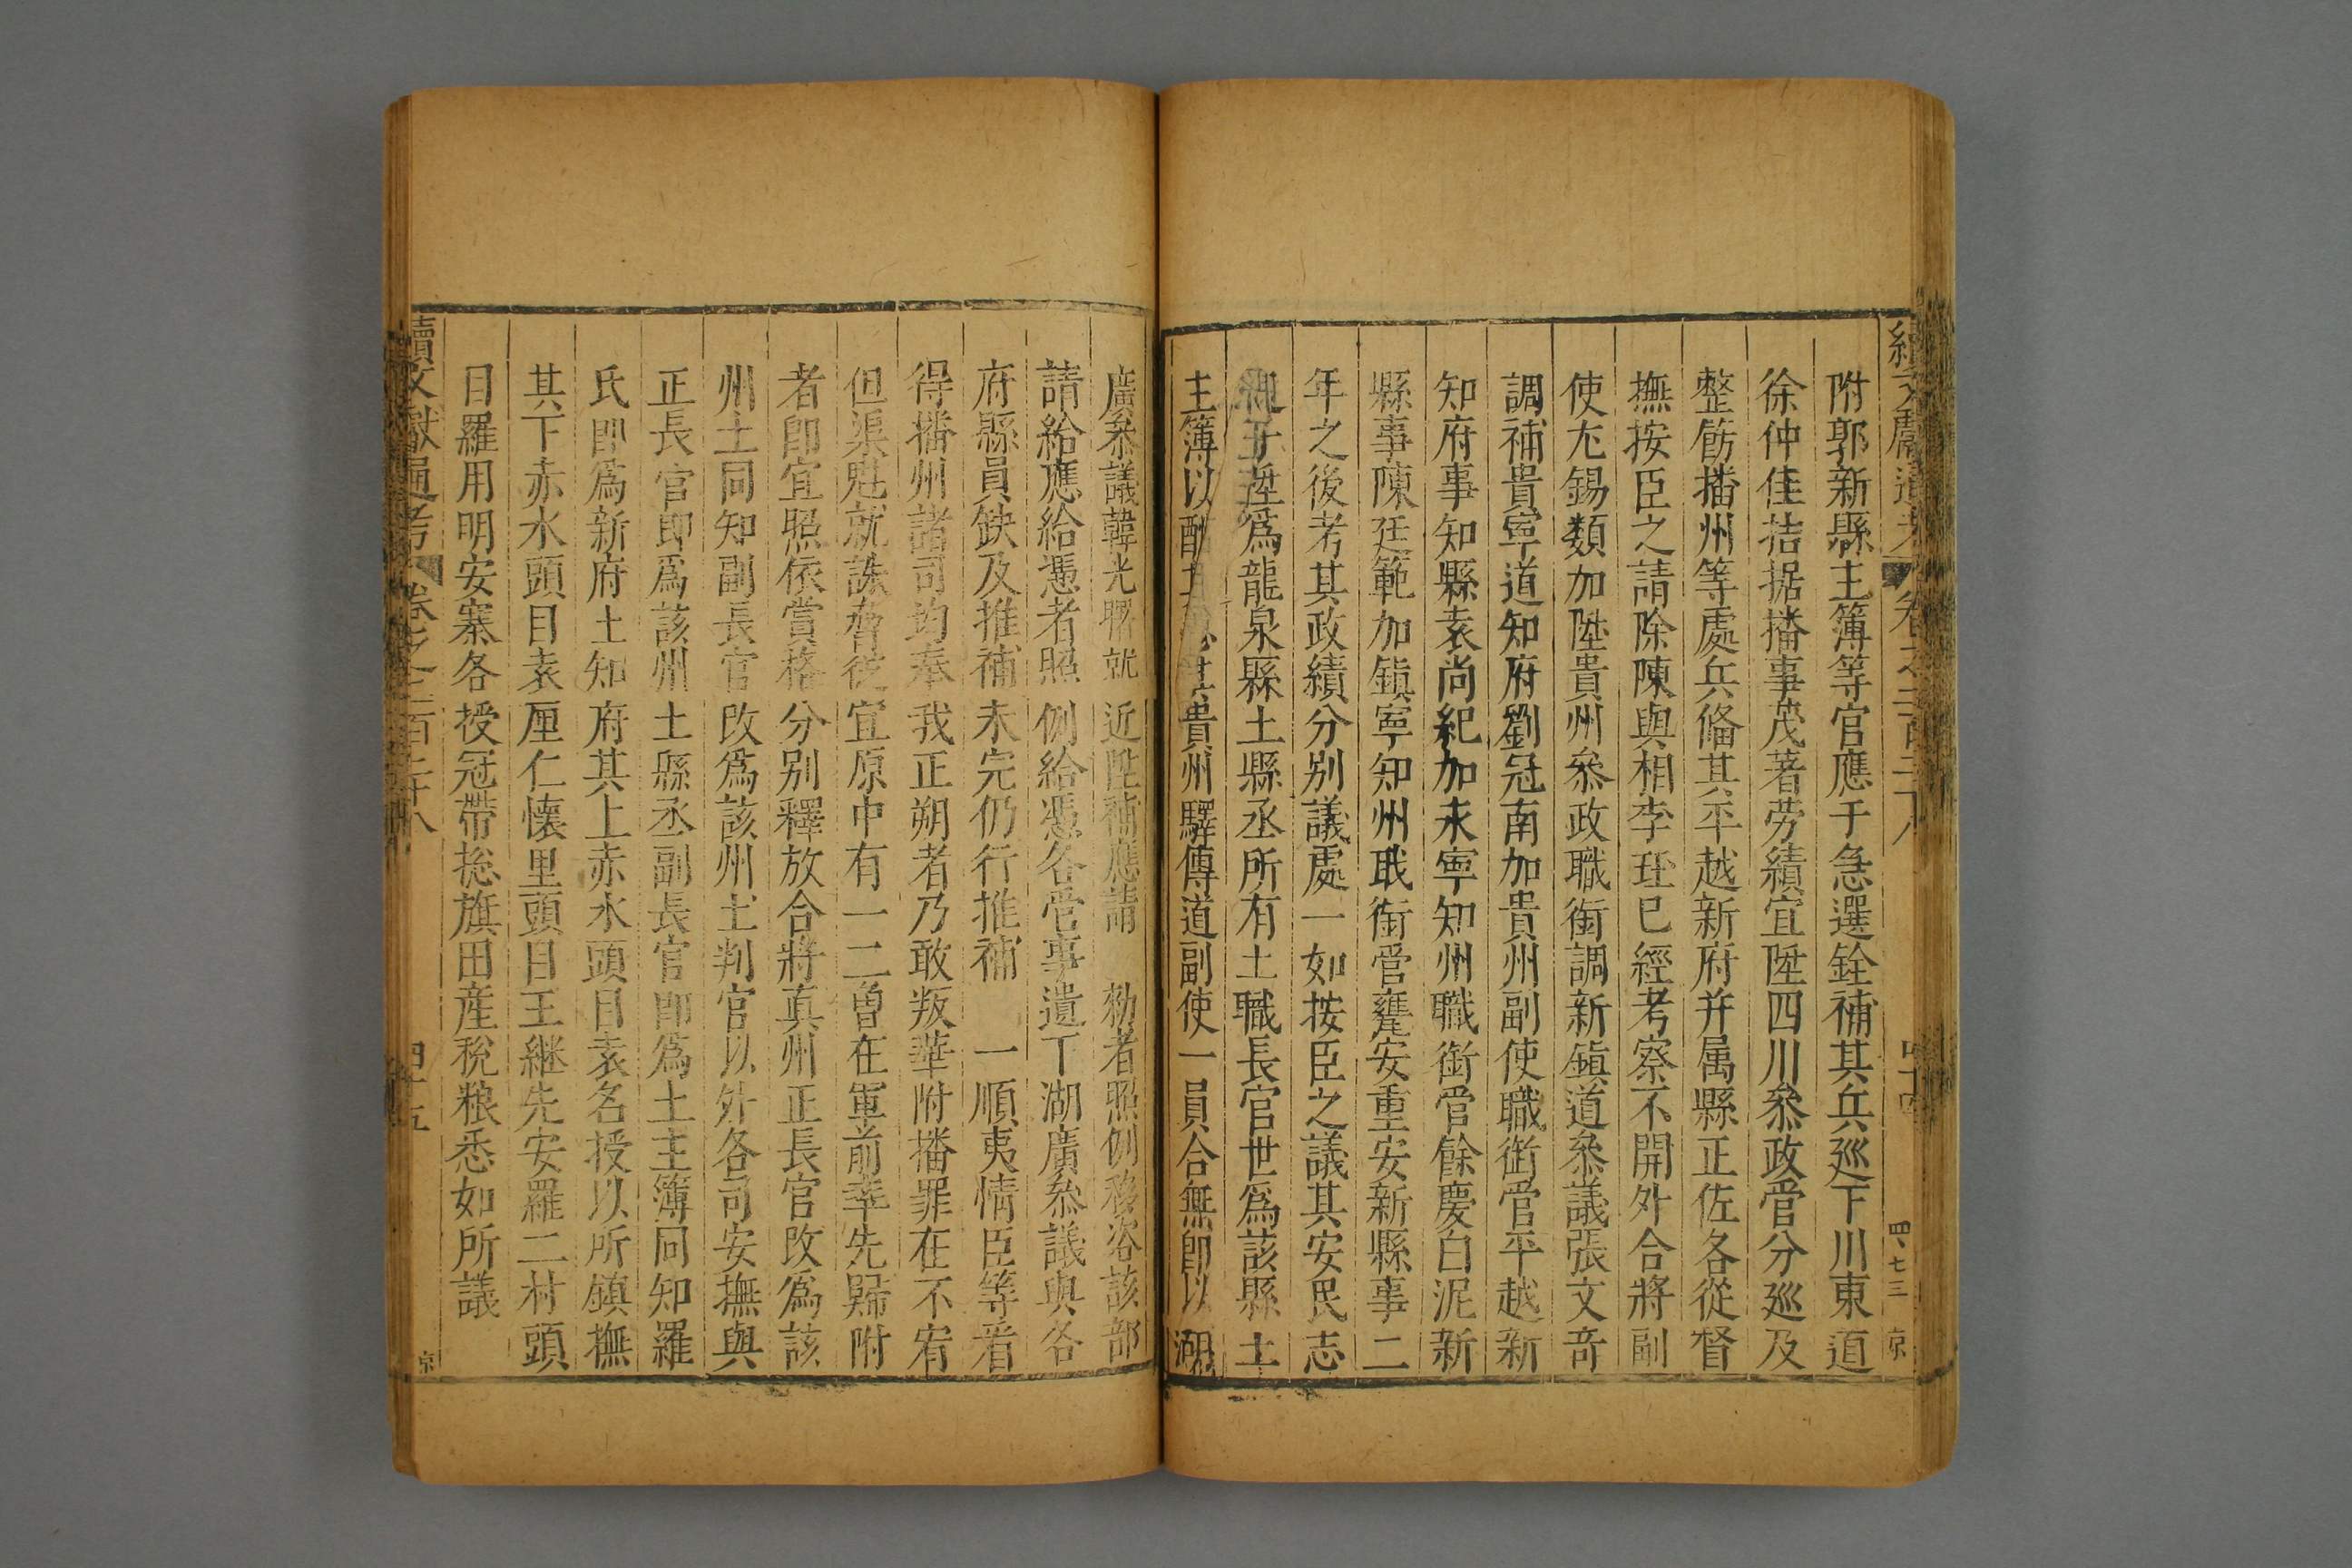 附郭新縣主簿等官應于急選銓補其兵廵下川東道
徐仲佳拮据播事茂著劳績宜陞四川叅政管分廵及
整飭播州等處兵備其平越新府并属縣正佐各從督
撫按臣之請除陳與相李珏已經考察不開外合將副
使尤錫類加陞貴州叅政職銜調新鎮道叅議張文竒
調補貴寧道知府劉冠南加貴州副使職銜管平越新
知府事知縣袁尚紀加永寧知州職銜管餘慶白泥新
縣事陳廷範加鎮寧知州職銜管甕安重安新縣事二
年之後考其政績分别議處一如按臣之議其安民志
陞爲龍泉縣土縣丞所有土職長官世爲該縣土
主簿以酬其貴州驛傳道副使一員合無即以湖
廣叅議韓光曙就近陞補應請 勑者照例移咨該部
請給應給憑者照例給憑各管事遺下湖廣叅議與各
府縣員缺及推補未完仍行推補 一順夷情臣等看
得播州諸司均奉我正朔者乃敢叛華附播罪在不宥
但渠魁就誅脅從宜原中有一二曽在軍前率先歸附
者卽宜照依賞格分别釋放合將真州正長官改爲該
州土同知副長官改爲該州土判官以外各司安撫與
正長官即爲該州土縣丞副長官即爲土主簿同知羅
氏即爲新府土知府其上赤水頭目袁名授以所鎮撫
其下赤水頭目袁厘仁懷里頭目王継先安羅二村頭
目羅用明安寨各授冠帶捴旗田産税粮悉如所議
續文獻通考 卷之二百三十八 四十五 京